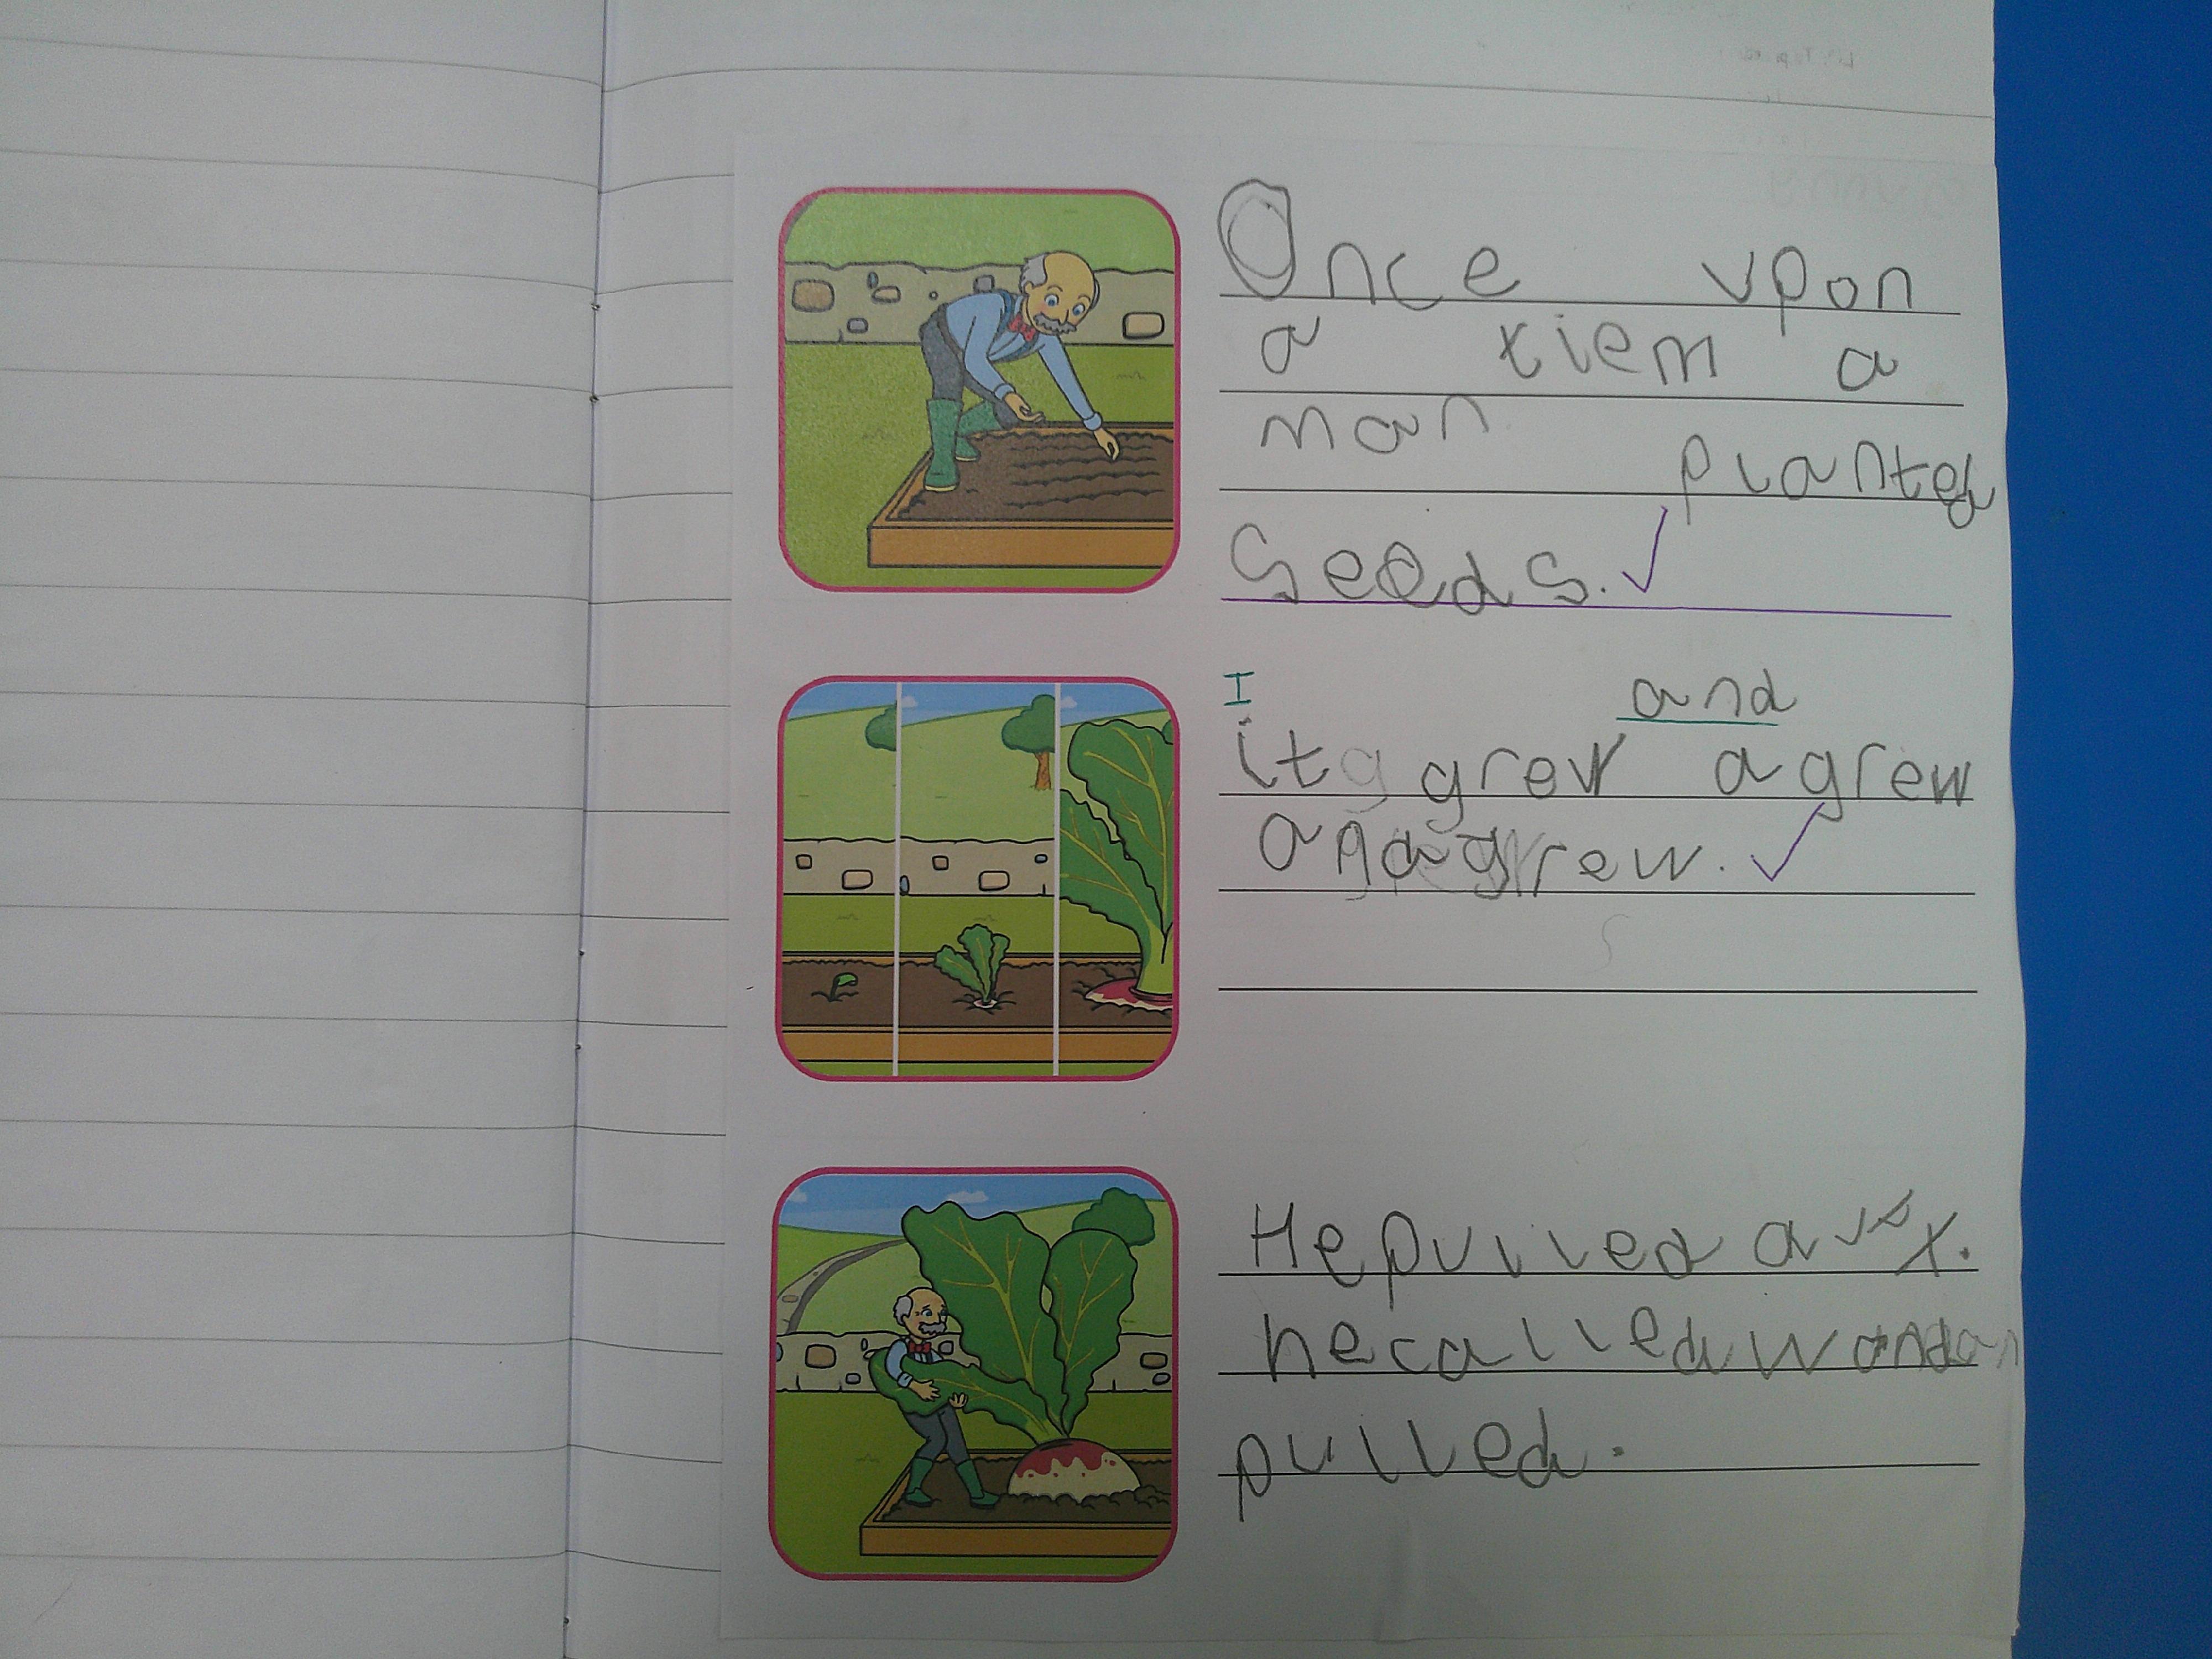 Once upon
a tiem a
man planted
Seeds.
I
and
it grew a grew
and grew.
He pulled
he called
pulled.